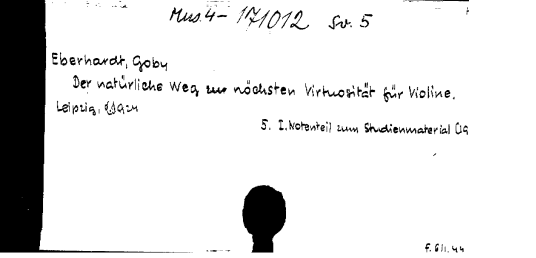 Mus. 4 - 171012 Sv. 5
Eberhardt, Goby
Der natürliche Weg zur höchsten Virtuosität für Violine.
Leipzig,
5. I. Notenteil zum Studienmaterial